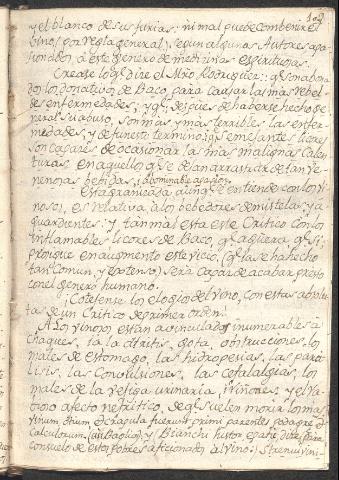 109
y el blanco de sus furias: ni mal puede combenir el
vino (por regla general) segun algunos Autores apa-
sionados, à este genero de medicinas espirituosas.
Crease lo que dice el Mro Rodriguez: que son abona-
dos los donativos de Baco, para causar las mas rebel-
des enfermedades; y que despues de haberse hecho ge-
neral su abuso, son mas y mas terribles las enfer-
medades, y de funesto termino: que semejantes licores
son capaces de ocasionar las mas malignas calen-
turas, en aquellos que se dejan arrastrar de tan ve-
nenosas bebidas, y abominable agasajo.
Esta granizada, aunque se entiende con los vi-
nosos, es relativa à los bebedores de mistelas, y a-
guardientes: y tan mal esta este Critico con los
inflamables licores de Baco, que aguera que si
prosigue en aumento este vicio, (que se ha hecho
tan comun, y extenso) será capaz de acabar presto
con el genero humano.
Cotejense los elogios del vino, con estas abomi-
tas de un Critico de primer orden.
A los vinosos estan avinculados inumerables a-
chaques, tales la artritis, gota, obstrucciones, los
males de estomago, las hidropesias, las para-
lisis, las convulsiones, las cefalalgias, los
males de la vegiga urinaria, riñones, y el va-
rioso afecto nefritico, de que suelen morir los mas:
vinum otium et crapula fuerunt primi parentes podagre et
Calculorum (dixit Baglivo) y Bianchi histor. epatic. dice para
consuelo de estos pobres aficionados al vino: Strenui vini-